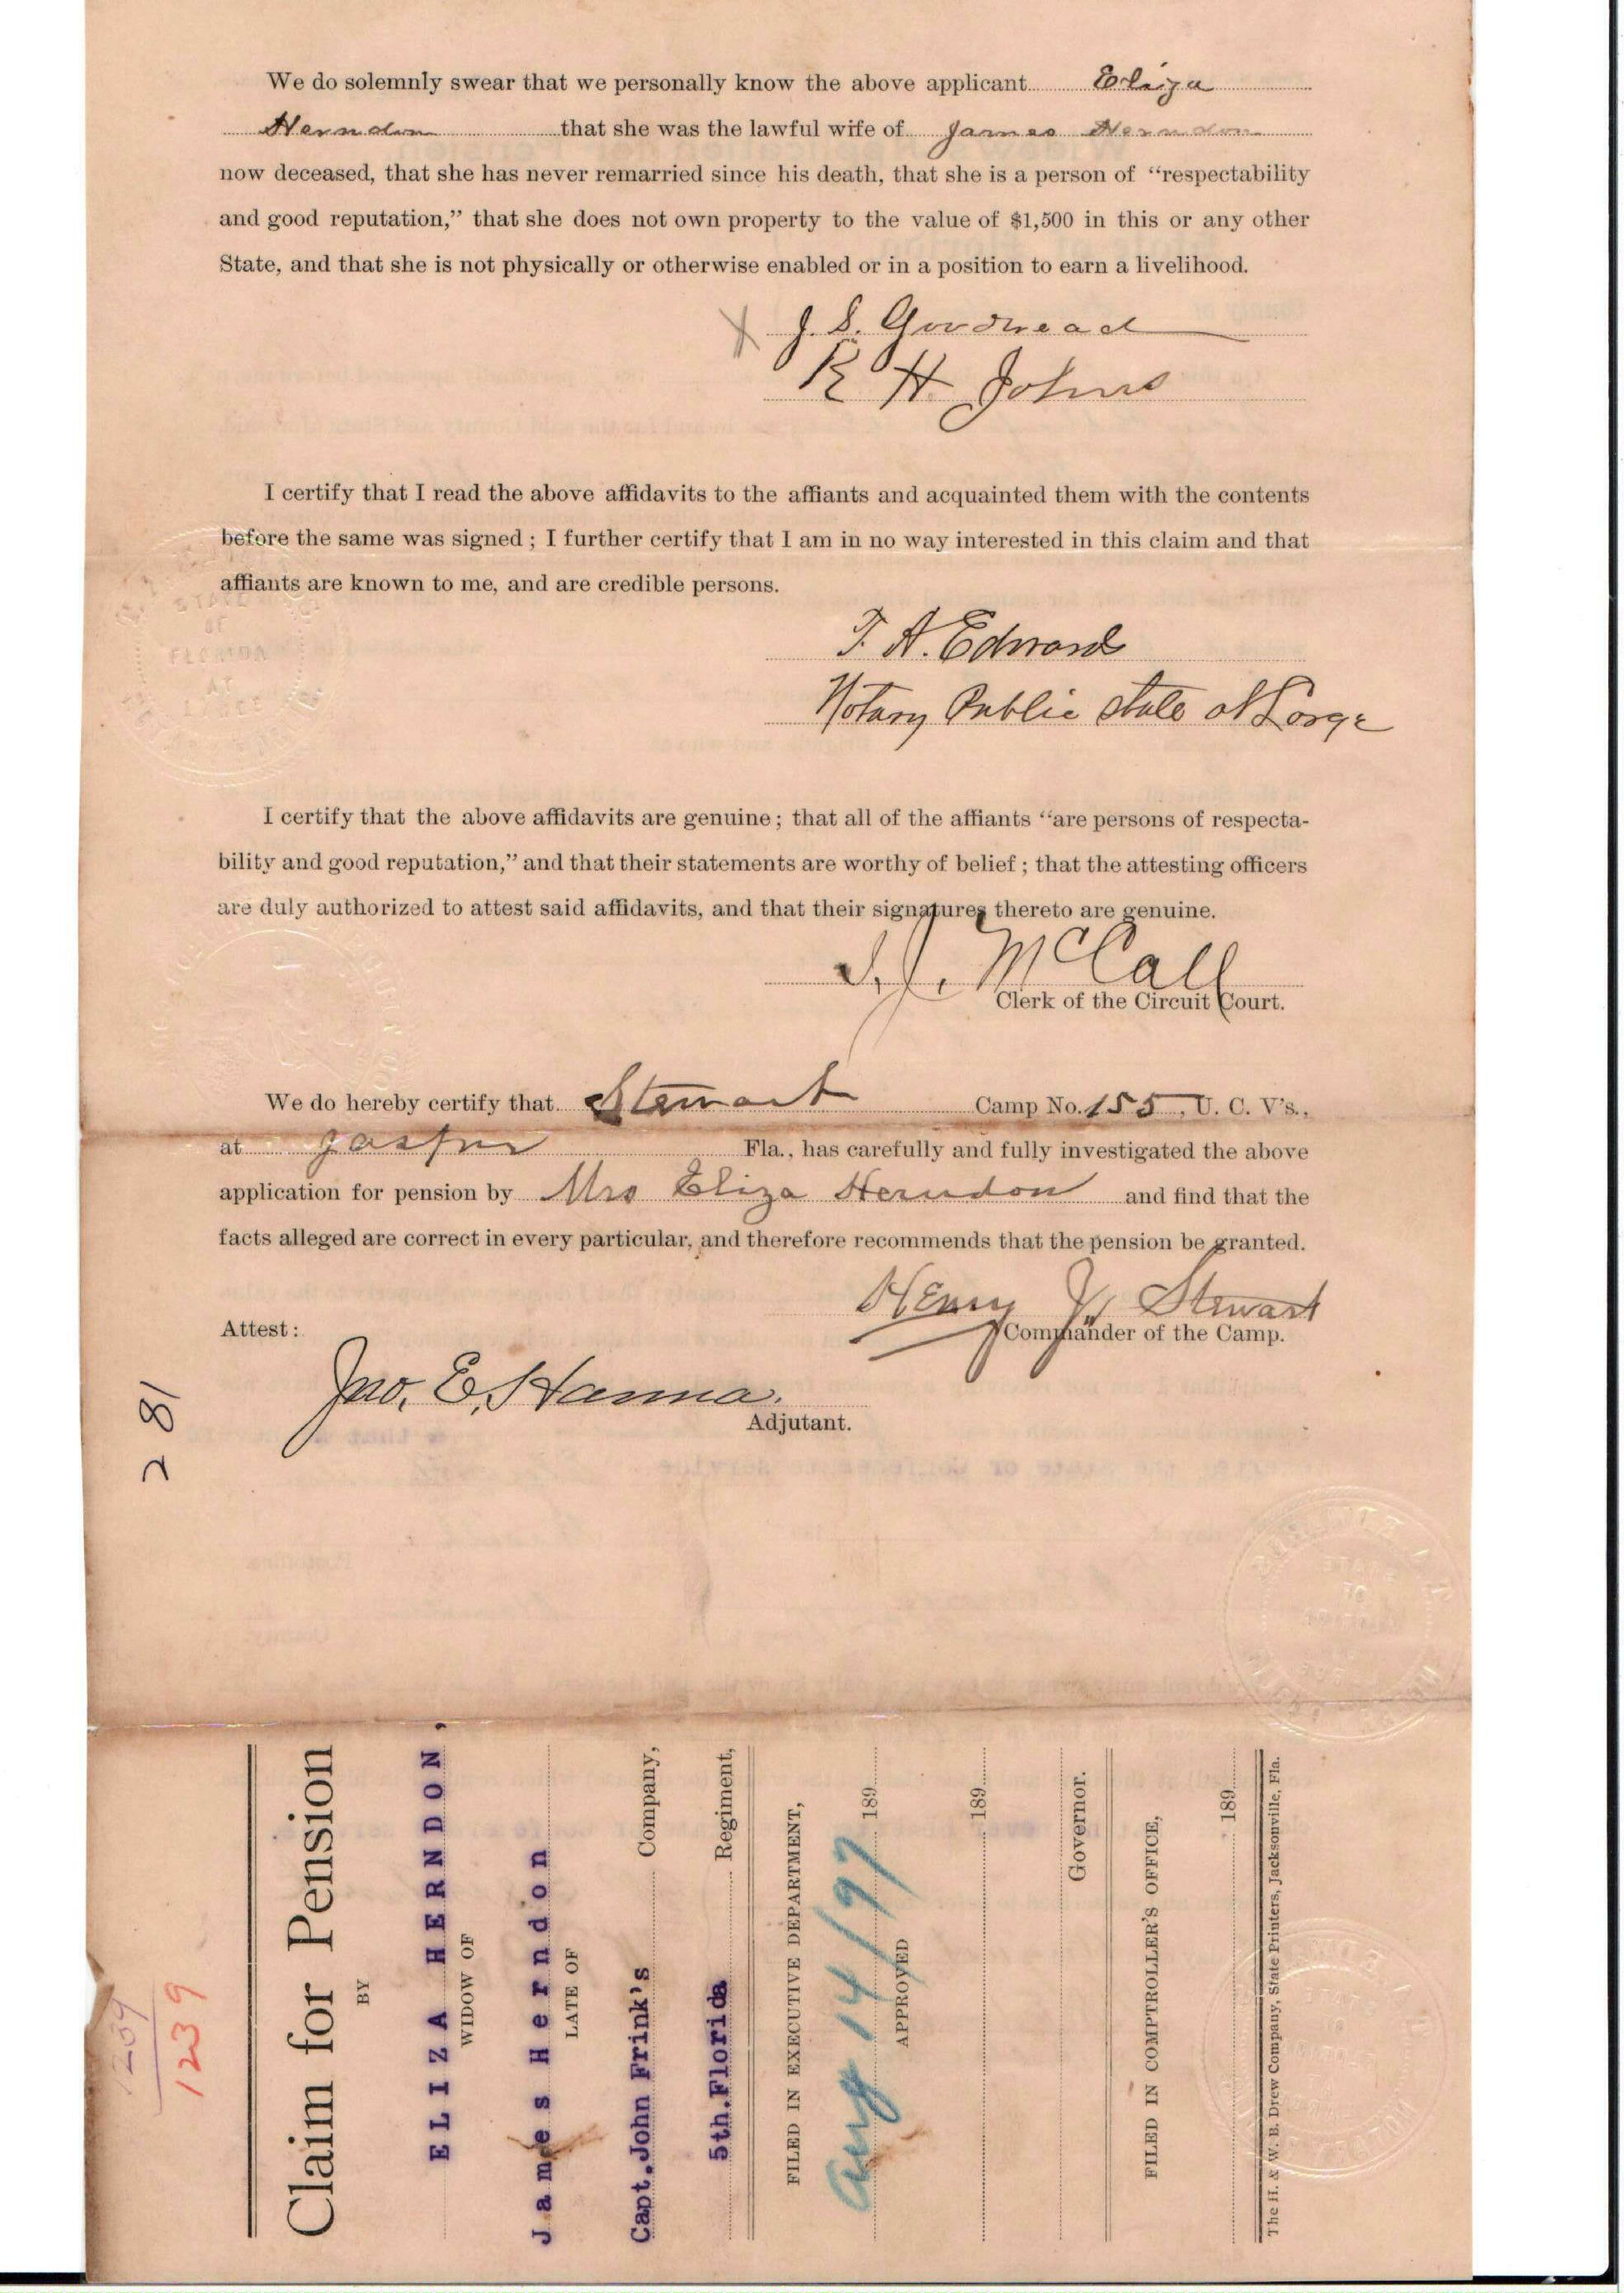 We do solemnly swear that we personally know the above applicant Eliza
Herndon that she was the lawful wife of James Herndon
now deceased, that she has never remarried since his death, that she is a person of “respectability
and good reputation,” that she does not own property to the value of $1,500 in this or any other
State, and that she is not physically or otherwise enabled or in a position to earn a livelihood.
X J. S. Goodread
R H Johns
I certify that I read the above affidavits to the affiants and acquainted them with the contents
before the same was signed ; I further certify that I am in no way interested in this claim and that
affiants are known to me, and are credible persons.
STATE
OF
FLORIDA
AT
LARGE
T. A. Edwards
Notary Public State at Large
I certify that the above affidavits are genuine ; that all of the affiants “are persons of respecta-
bility and good reputation,” and that their statements are worthy of belief ; that the attesting officers
are duly authorized to attest said affidavits, and that their signatures thereto are genuine.
J. J. McCall
Clerk of the Circuit Court.
We do hereby certify that Stewart Camp No. 155, U. C. V's.,
at Jasper Fla., has carefully and fully investigated the above
application for pension by Mrs Eliza Herndon and find that the
facts alleged are correct in every particular, and therefore recommends that the pension be granted.
Henry J. Stewart
Commander of the Camp.
Attest :
Jno. E. Hanna.
Adjutant.
281
1239
1239
Claim for Pension
BY
ELIZA HERNDON,
WIDOW OF
James Herndon
LATE OF
Capt. John Frink's Company,
5th. Florida Regiment,
FILED IN EXECUTIVE DEPARTMENT,
Aug 14/97 189
APPROVED
189
Governor.
FILED IN COMPTROLLER'S OFFICE,
189
The H. & W. B. Drew Company, State Printers, Jacksonville, Fla.